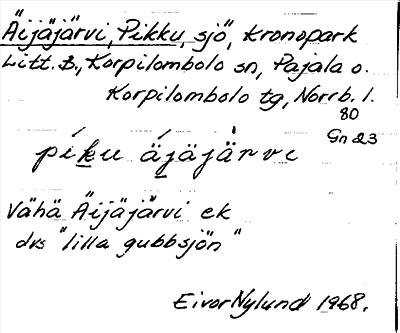 Äijäjärvi, Pikku, sjö, kronopark
Litt. B., Korpilombolo sn, Pajala o.
Korpilombolo tg, Norrb. l.
80
Gn 23
píku ä́jäjä̀rvi
Vähä Äijäjärvi ek
dvs "lilla gubbsjön"
Eivor Nylund 1968.